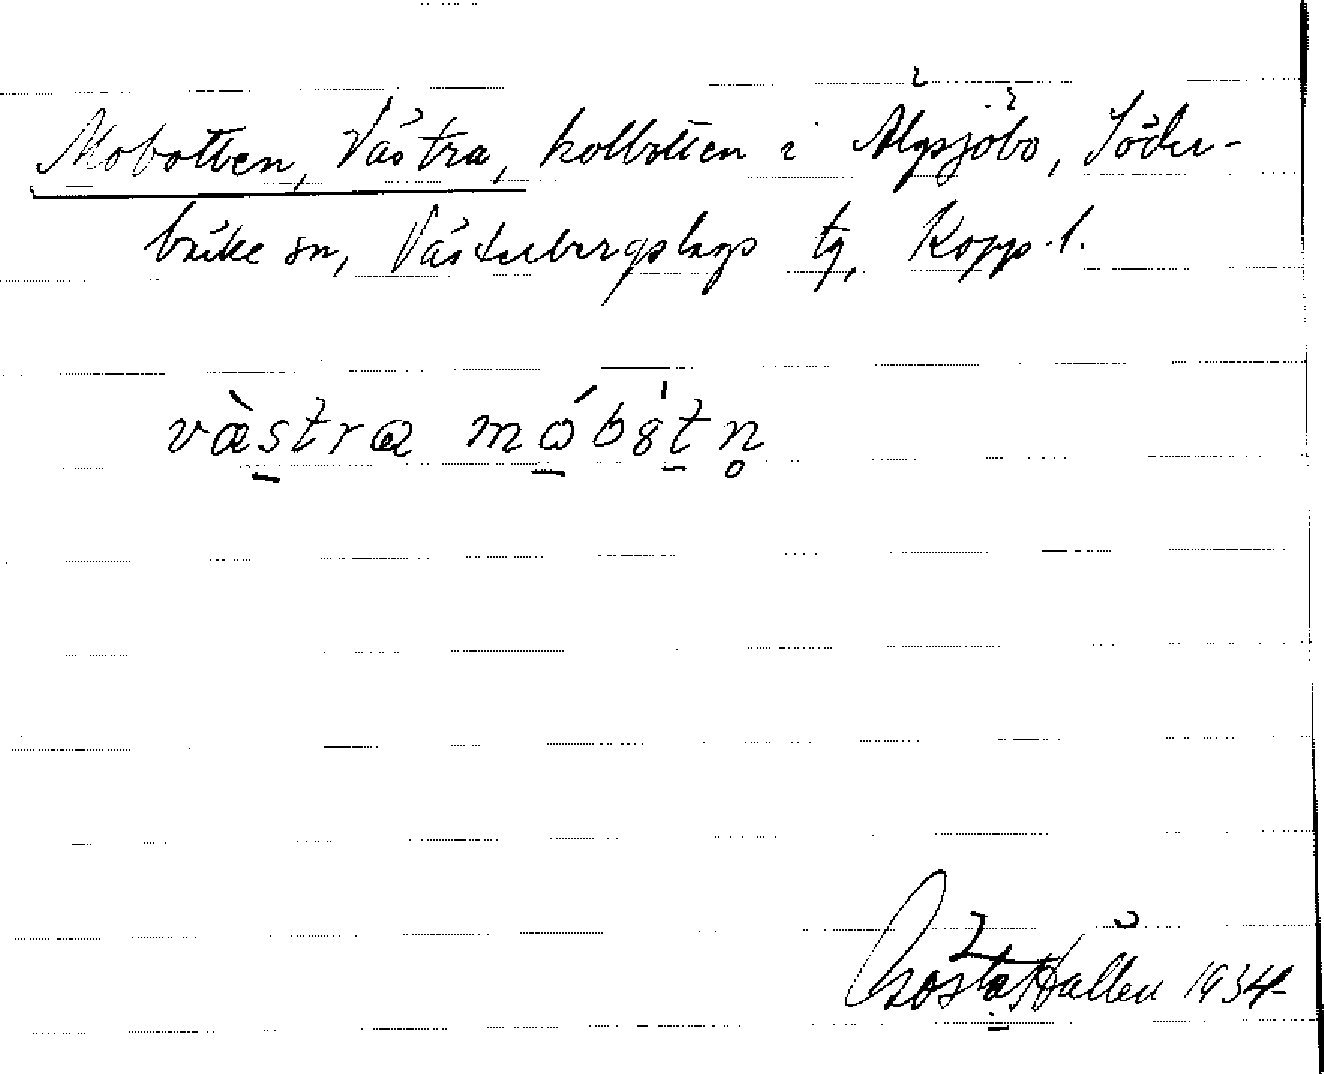 Mobotten, Västra, kolbotten i Älgsjöbo, Söder-
bärke sn, Västerbergslags tg, Kopp. l.
væ̀stra mǿbòtn̥
Gösta Hallén 1934